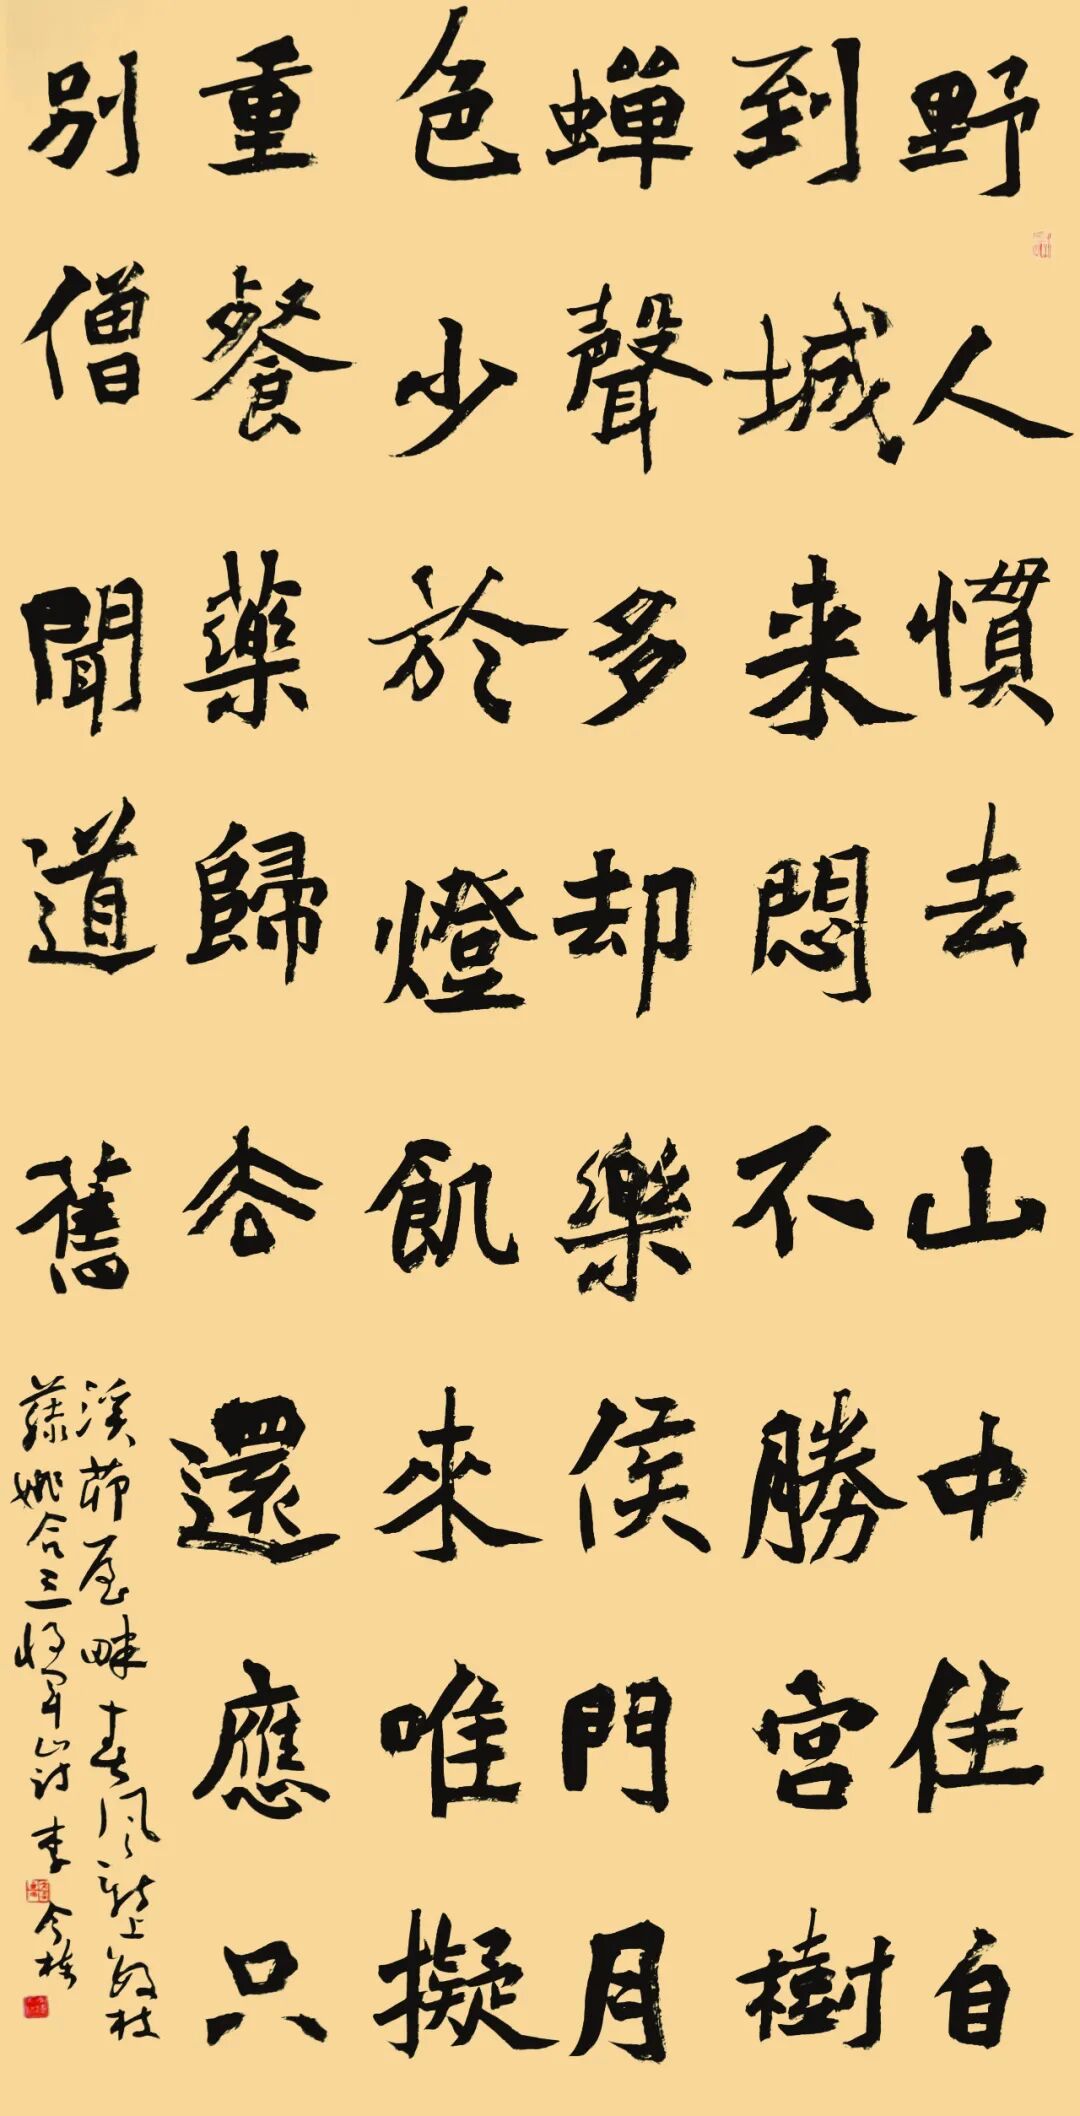 野人慣去山中住自
到城来悶不勝宮樹
蟬聲多却樂侯門月
色少於燈飢來唯擬
重餐藥歸去還應只
別僧聞道舊
溪茆屋畔春风新上數枝
藤姚合三山詩李